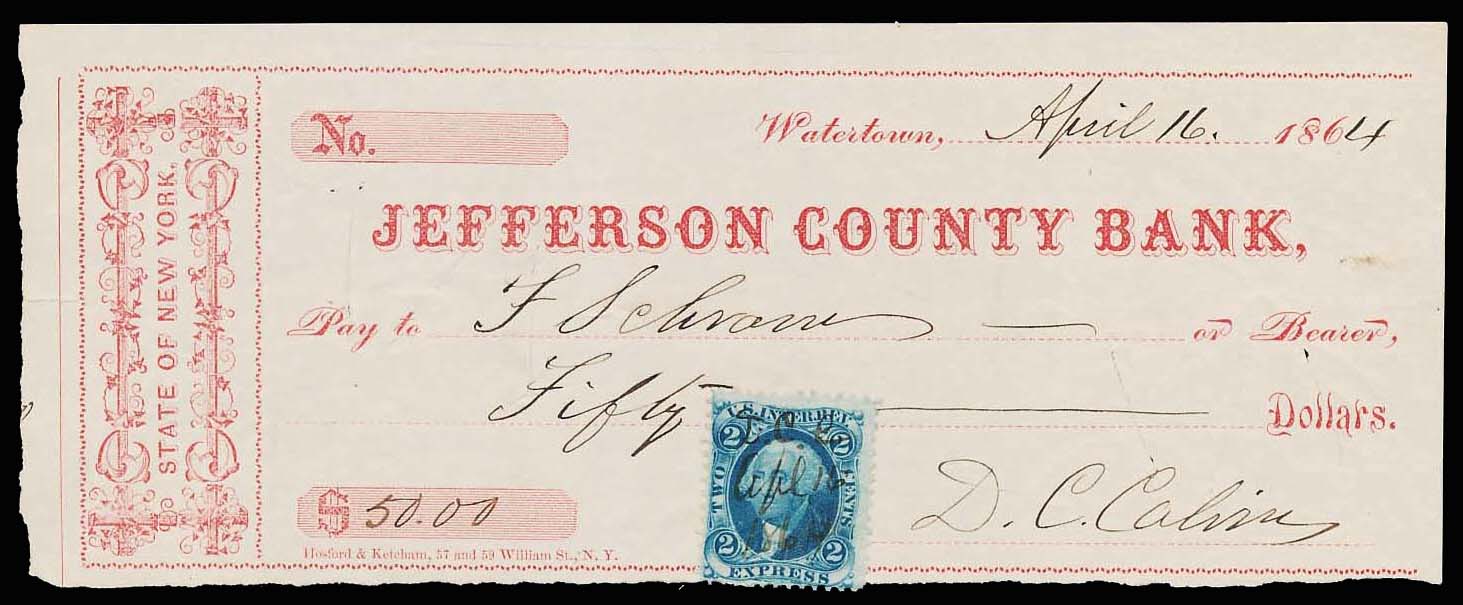 STATE OF NEW YORK.
No.
Watertown, April 16. 1864
JEFFERSON COUNTY BANK,
Pay to F or Bearer,
Fifty Dollars.
$ 50.00
D. C.
Hosford & Ketcham, 57 and 59 William St., N. Y.
U.S. INTER. REV.
2 2
TWO CENTS
2 2
EXPRESS
D. C. C.
Apl 16
1864